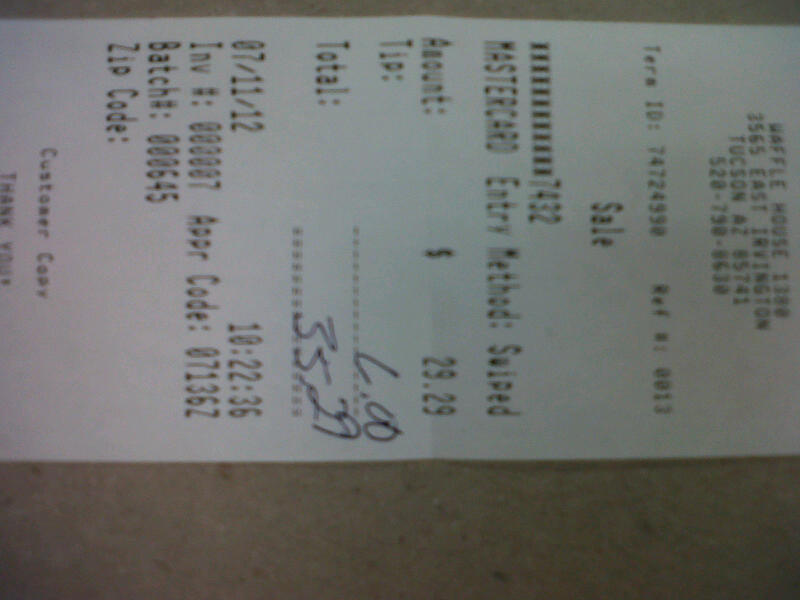 WAFFLE HOUSE 1380
3565 EAST IRVINGTON
TUCSON AZ 85741
520-790-8630
Term ID: 74724990 Ref #: 0013
Sale
XXXXXXXXXXXX7432
MASTERCARD Entry Method: Swiped
Amount: $ 29.29
Tip: 6.00
Total: 35.29
07/11/12 10:22:36
Inv #: 000007 Appr Code: 07136Z
Batch#: 000645
Zip Code:
Customer Copy
THANK YOU!